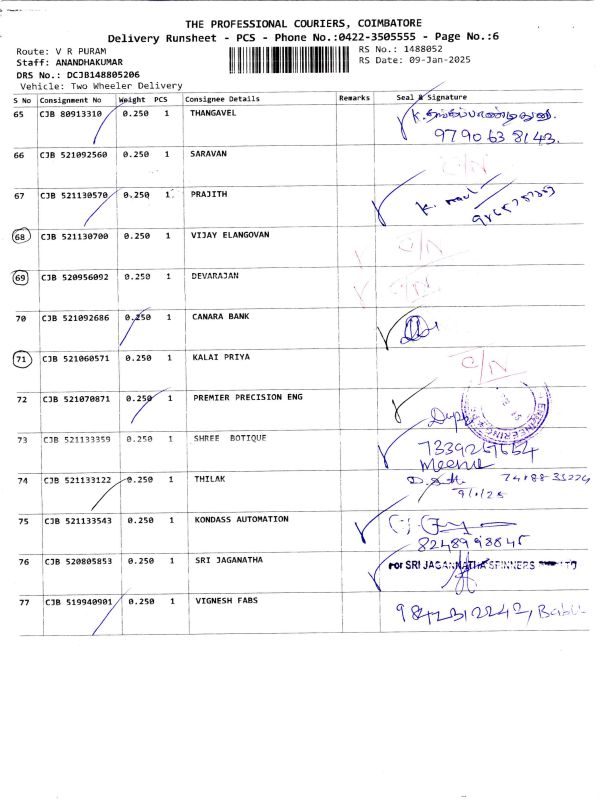 THE PROFESSIONAL COURIERS, COIMBATORE
Delivery Runsheet - PCS - Phone No.:0422-3505555 - Page No.:6
Route: V R PURAM RS No.: 1488052
Staff: ANANDHAKUMAR RS Date: 09-Jan-2025
DRS No.: DCJB148805206
Vehicle: Two Wheeler Delivery
S No Consignment No Weight PCS Consignee Details Remarks Seal & Signature
65 CJB 80913310 0.250 1 THANGAVEL
9790638143.
66 CJB 521092560 0.250 1 SARAVAN C/N
67 CJB 521130570 0.250 1 PRAJITH K.
68 CJB 521130700 0.250 1 VIJAY ELANGOVAN C/N
69 CJB 520956092 0.250 1 DEVARAJAN C/N
70 CJB 521092686 0.250 1 CANARA BANK
71 CJB 521060571 0.250 1 KALAI PRIYA C/N
72 CJB 521070871 0.250 1 PREMIER PRECISION ENG
ENGINEERING
73 CJB 521133359 0.250 1 SHREE BOTIQUE 7339267654
Meena
74 CJB 521133122 0.250 1 THILAK
9/1/25
75 CJB 521133543 0.250 1 KONDASS AUTOMATION
8248998845
76 CJB 520805853 0.250 1 SRI JAGANATHA For SRI JAGANNATHA SPINNERS LTD
77 CJB 519940901 0.250 1 VIGNESH FABS 9842312242, Babu